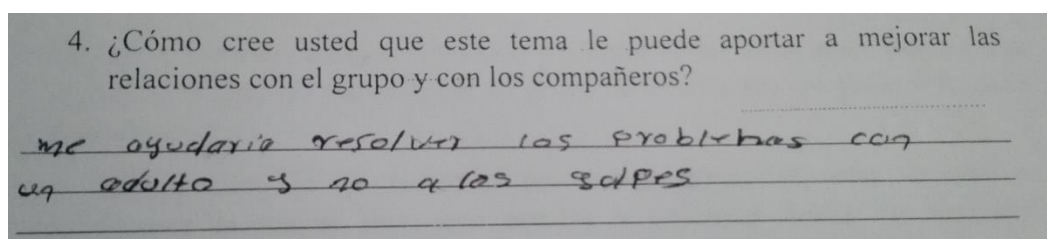 4. ¿Cómo cree usted que este tema le puede aportar a mejorar las
relaciones con el grupo y con los compañeros?
me ayudaria resolver los problemas con
un adulto y no a los golpes